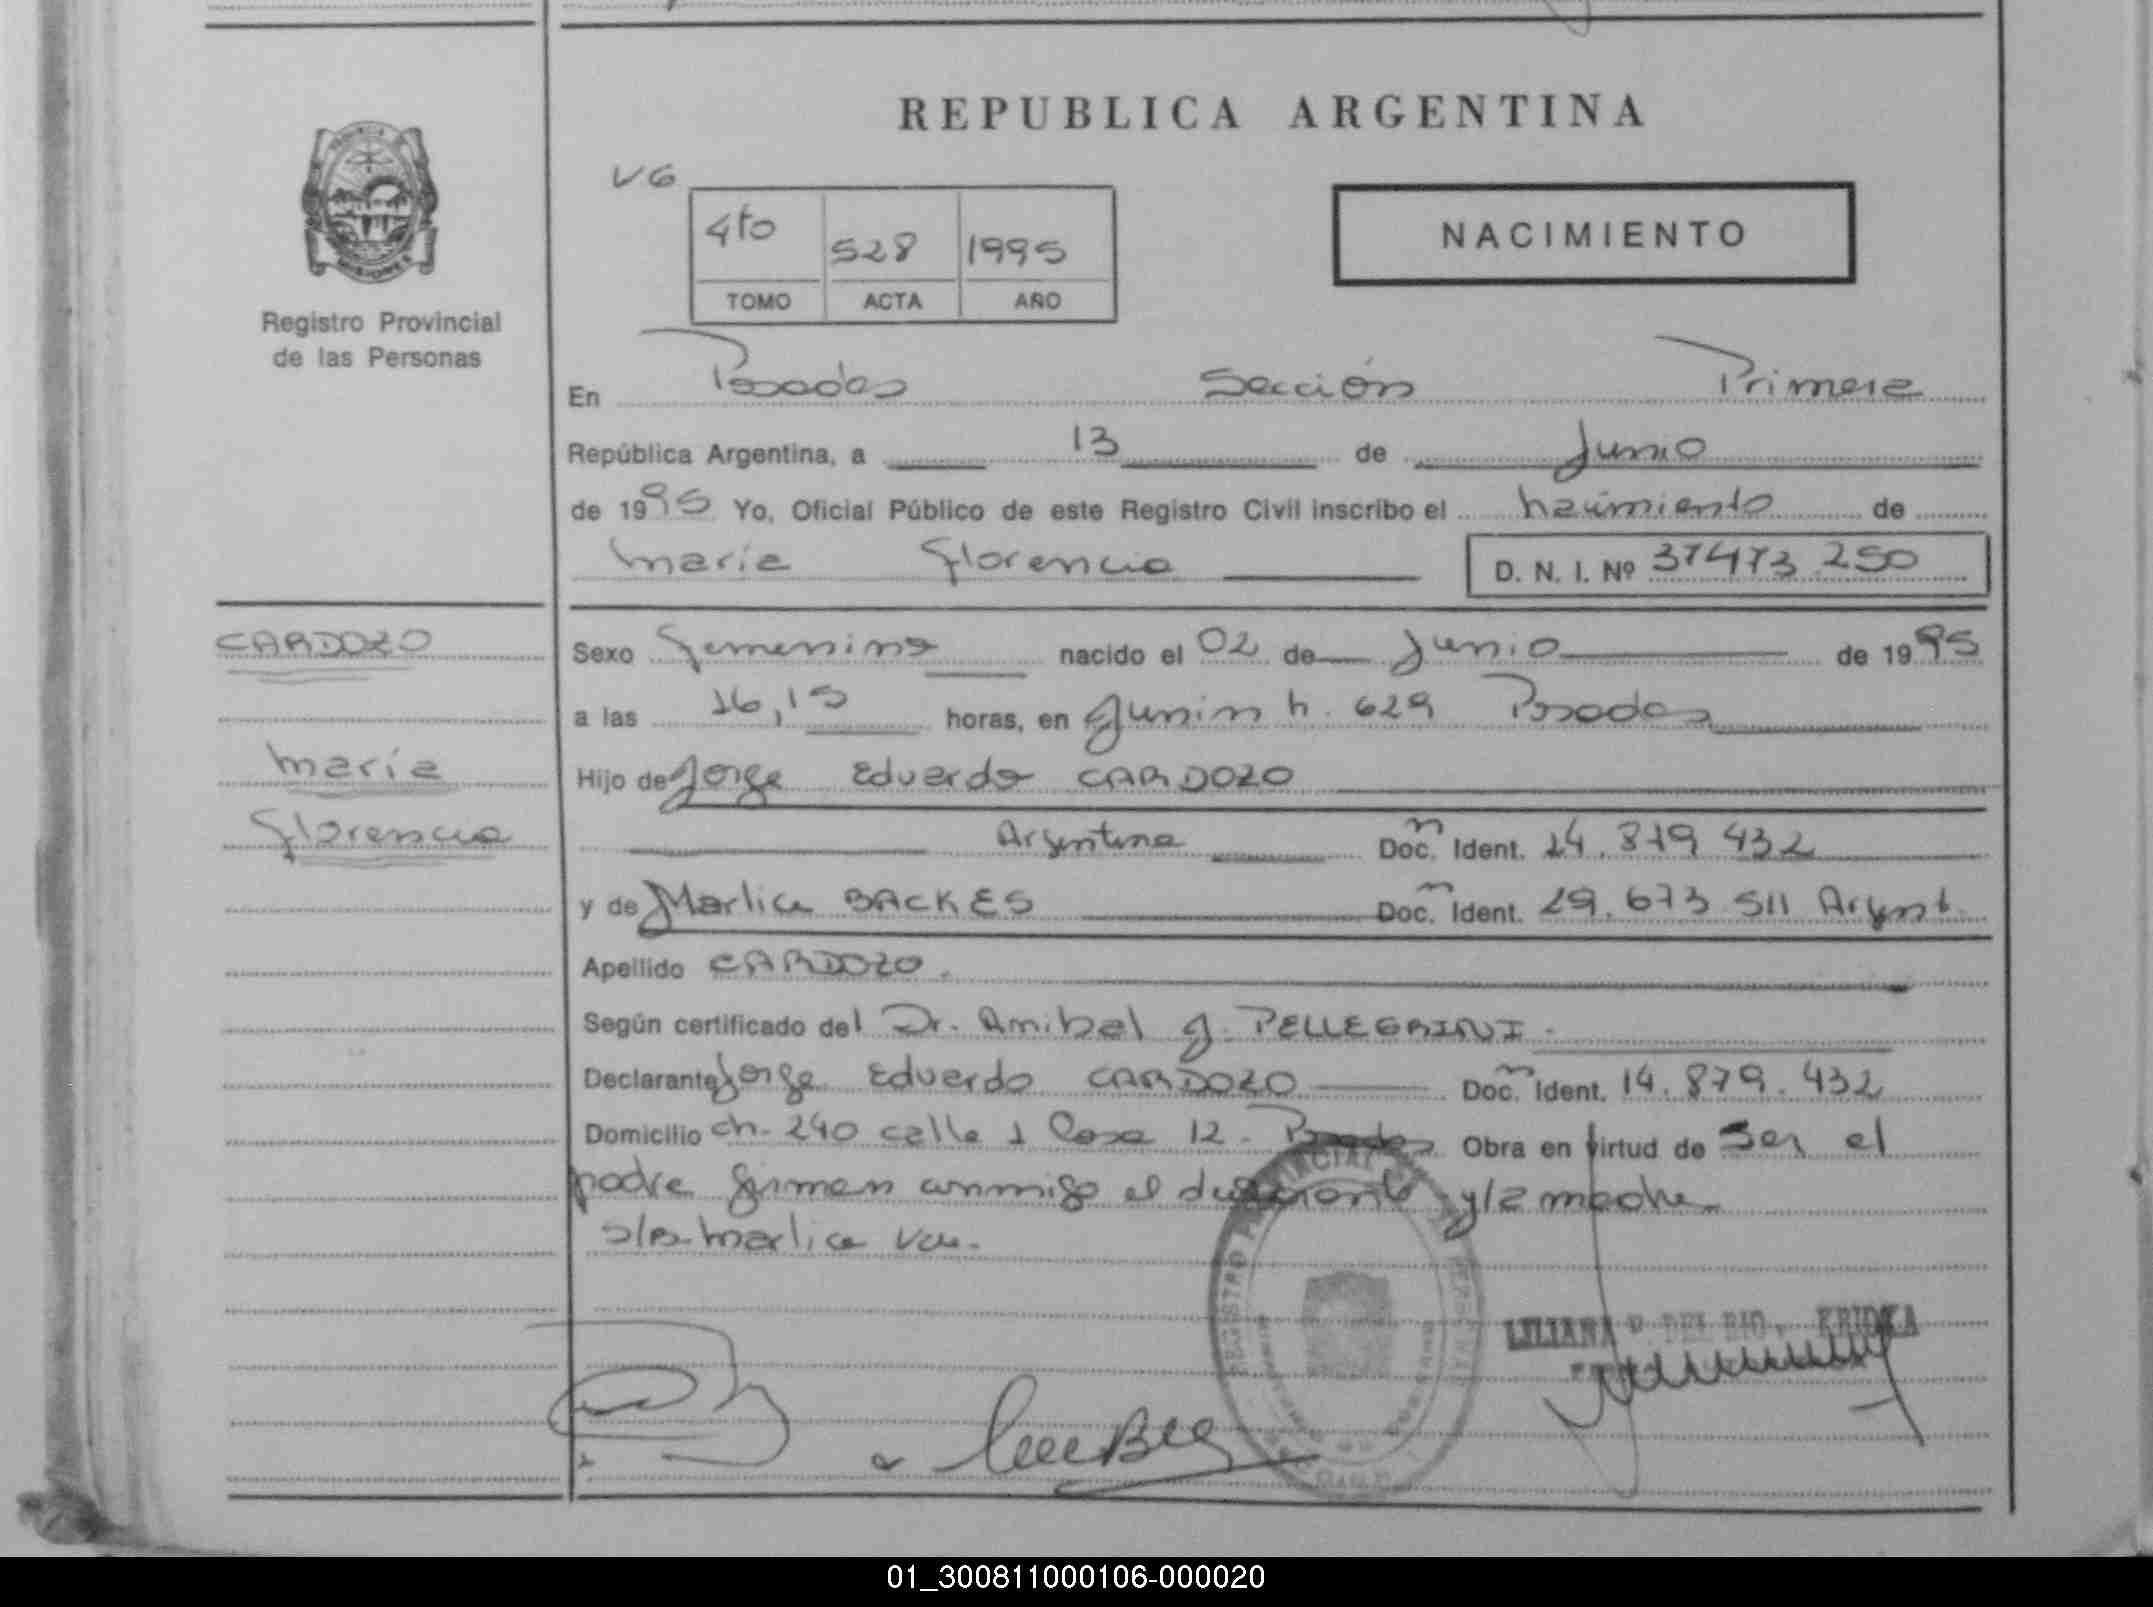 REPUBLICA ARGENTINA
VG
4to 528 1995
TOMO ACTA AÑO
NACIMIENTO
Registro Provincial
de las Personas
En Posadas Sección Primera
República Argentina, a 13 de Junio
de 1995 Yo, Oficial Público de este Registro Civil inscribo el nacimiento de
María Florencia D. N. I. Nº 37473 250
CARDOZO
María
Florencia
Sexo Femenino nacido el 02 de Junio de 1995
a las 16,15 horas, en Junin n. 629 Posadas
Hijo de Jorge Eduardo CARDOZO
Argentina Doc. Ident. 14.879 432
y de Marlica BACKES Doc. Ident. 29.673 511 Argent.
Apellido CARDOZO.
Según certificado del Dr. Anibal J. PELLEGRINI.
Declarante Jorge Eduardo CARDOZO Doc. Ident. 14.879.432
Domicilio ch. 240 calle 1 Casa 12. Posadas Obra en virtud de Ser el
padre firman conmigo el declarante y la madre
s/r. Marlica Vale.
REGISTRO PROVINCIAL
LILIANA DEL RIO
01_300811000106-000020